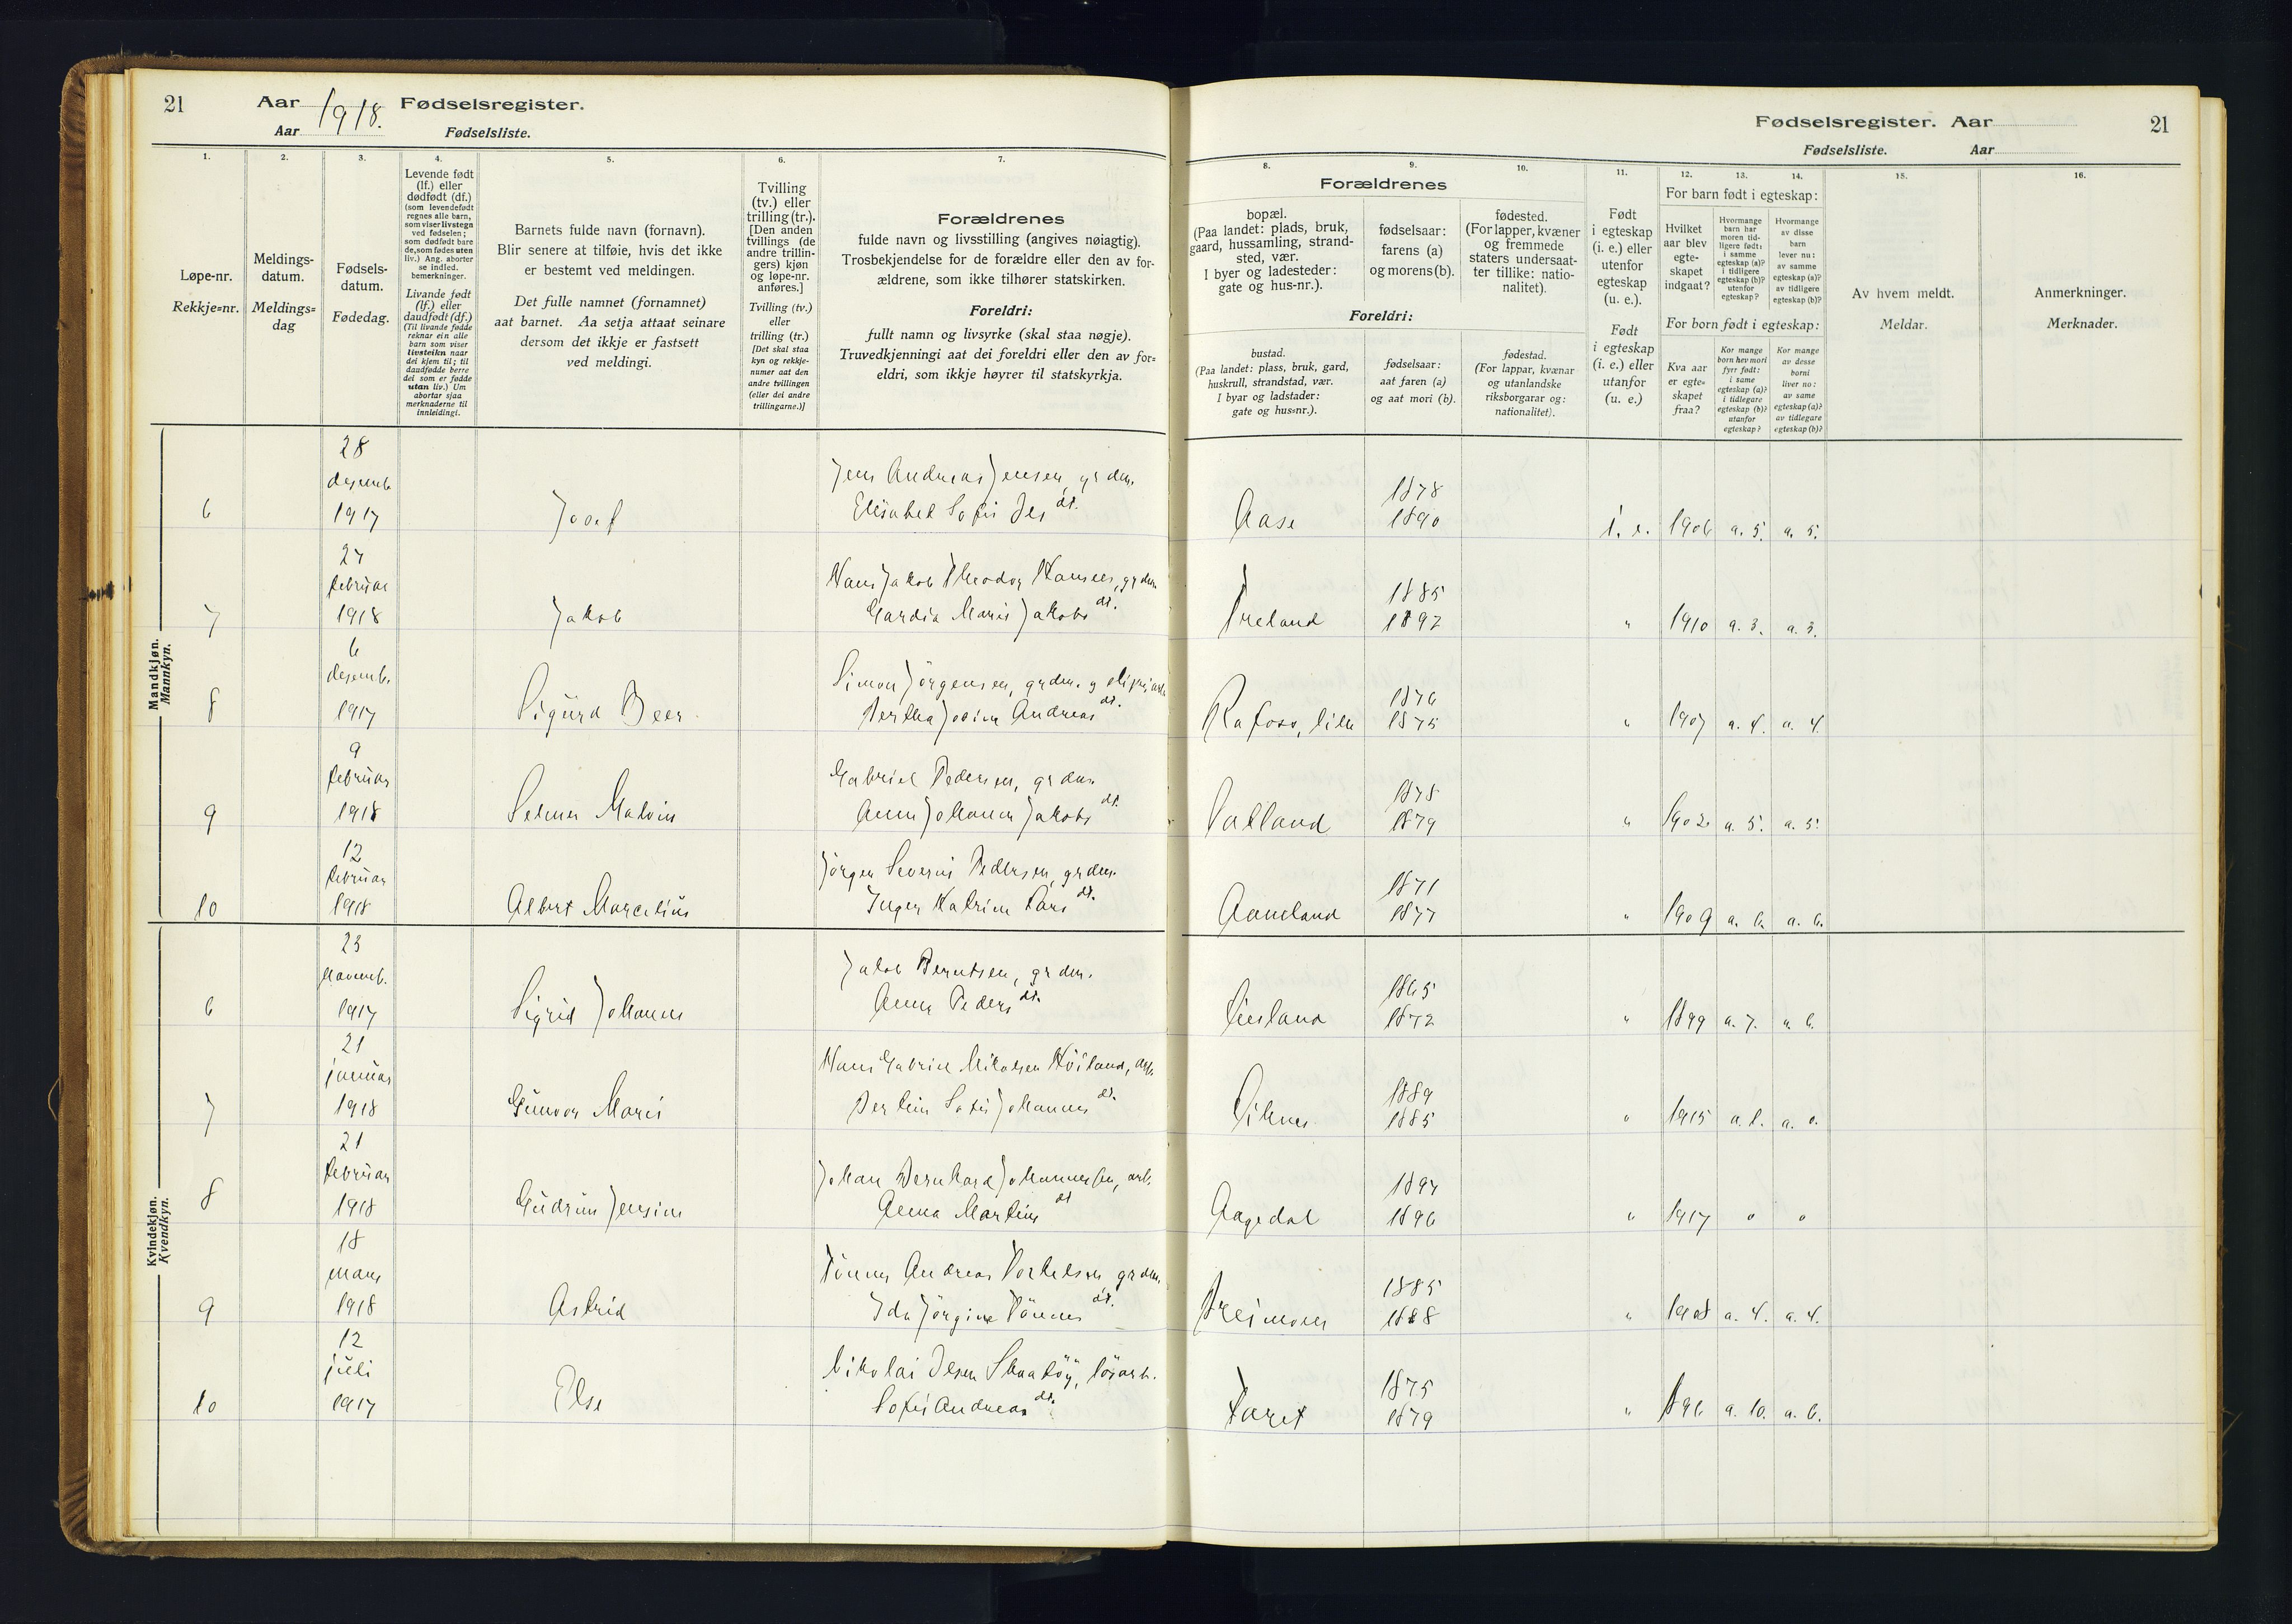 21 Aar 1918. Fødselsregister.
Aar Fødselsliste.
Fødselsregister. Aar 21
Fødselsliste. Aar
1.
Løpe-nr.
Rekkje=nr.
2.
Meldings-
datum.
Meldings=
dag
3.
Fødsels-
datum.
Fødedag.
4.
Levende født
(lf.) eller
dødfødt (df.)
(som levendefødt
regnes alle barn,
som viser livstegn
ved fødselen;
som dødfødt bare
de, som føden uten
liv.) Ang. aborter
se indled.
bemerkninger.
Livande født
(lf.) eller
daudfødt (df.)
(Til livande fødde
reknar ein alle
barn som viser
livsteikn naar
dei kjem til; til
daudfødde berre
dei som er fødde
utan liv.) Um
abortar sjaa
merknaderne til
innleidingi.
5.
Barnets fulde navn (fornavn).
Blir senere at tilføie, hvis det ikke
er bestemt ved meldingen.
Det fulle namnet (fornamnet)
aat barnet. Aa setja attaat seinare
dersom det ikkje er fastsett
ved meldingi.
6.
Tvilling
(tv.) eller
trilling (tr.).
[Den anden
tvillings (de
andre trillin-
gers) kjøn
og løpe-nr.
anføres.]
Tvilling (tv.)
eller
trilling (tr.)
[Det skal staa
kyn og rekkje-
numer aat den
andre tvillingen
(eller dei andre
trillingarne.)]
7.
Forældrenes
fulde navn og livsstilling (angives nøiagtig).
Trosbekjendelse for de forældre eller den av for-
ældrene, som ikke tilhører statskirken.
Foreldri:
fullt namn og livsyrke (skal staa nøgje).
Truvedkjenningi aat dei foreldri eller den av for=
eldri, som ikkje høyrer til statskyrkja.
8. 9. 10.
Forældrenes
bopæl.
(Paa landet: plads, bruk,
gaard, hussamling, strand-
sted, vær.
I byer og ladesteder:
gate og hus-nr.).
fødselsaar:
farens (a)
og morens (b).
fødested.
(For lapper, kvæner
og fremmede
staters undersaat-
ter tillike: natio-
nalitet).
Foreldri:
bustad.
(Paa landet: plass, bruk, gard,
huskrull, strandstad, vær.
I byar og ladstader:
gate og hus=nr.).
fødselsaar:
aat faren (a)
og aat mori (b).
fødestad.
(For lappar, kvænar
og utanlandske
riksborgarar og:
nationalitet).
11.
Født
i egteskap
(i. e.) eller
utenfor
egteskap
(u. e.).
Født
i egteskap
(i. e.) eller
utanfor
(u. e.)
12. 13. 14.
For barn født i egteskap:
Hvilket
aar blev
egte-
skapet
indgaat?
Hvormange
barn har
moren tid-
ligere født:
i samme
egteskap (a)?
i tidligere
egteskap (b)?
utenfor
egteskap?
Hvormange
av disse
barn
lever nu:
av samme
egteskap (a)?
av tidligere
egteskap (b)?
For born født i egteskap:
Kva aar
er egte=
skapet
fraa?
Kor mange
born hev mori
fyrr født:
i same
egteskap (a)?
i tidlegare
egteskap (b)?
utanfor
egteskap?
Kor mange
av desse
borni
liver no:
av same
egteskap (a)?
av tidlegare
egteskap (b)?
15.
Av hvem meldt.
Meldar.
16.
Anmerkninger.
Merknader.
Mandkjøn.
Mannkyn.
28
desemb.
6 1917 Josef
Jens Andreas Jensen, grdm.
Elisabet Sofie dt.
Aase 1878
1890 i. e. 1906 a. 5. a. 5.
27
februar
7 1918 Jakob
Hans Jakob Theodor Hansen, grdm
Gardia Marie Jakobs dt.
Treland 1885
1892 " 1910 a. 3. a. 3.
6
desemb.
8 1917 Sigurd Beer
Simon Jörgensen, grdm. og
Bertha Josine Andreas dt.
Rafoss, lille 1876
1875 " 1907 a. 4. a. 4.
9
februar
9 1918 Selmer Malvin
Gabriel Pedersen, grdm
Anne Johanne Jakobs dt.
1878
1879 " 1902 a. 5. a. 5.
12
februar
10 1918 Albert Marcelius
Jörgen Severin Pedersen, grdm.
Inger Katrine Lars dt.
Aamland 1871
1877 " 1909 a. 6. a. 6.
Kvindekjøn.
Kvendkyn.
23
novemb.
6 1917 Sigrid Johanne
Jakob Berntsen, grdm.
Anne Peders dt.
1865
1872 " 1899 a. 7. a. 6.
21
januar
7 1918 Gunvor Marie
Hans Gabriel Nikolsen Höiland, arb.
Bertine Sofie Johannes dt.
1889
1885 " 1915 a. 1. a. 0.
21
februar
8 1918 Gudrun Jensine
Johan Bernhard Johannessen, arb.
Anna Martins dt
Aagedal 1894
1896 " 1917 0 0
18
mars
9 1918 Astrid
Tönnes Andreas Torkelsen grdm
Ida Jörgine Tönnes dt.
Breimoen 1885
1888 " 1908 a. 4. a. 4.
12
juli
10 1917 Else
Nikolai Olsen
Sofie Andreas dt.
1875
1879 " 1896 a. 10. a. 6.